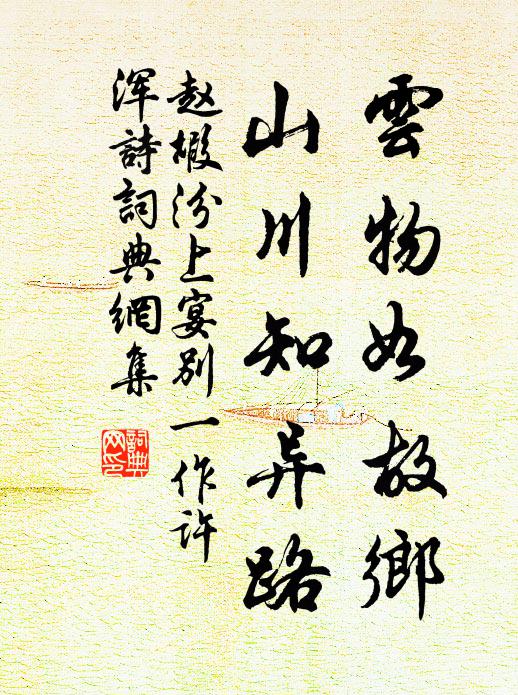 雲物如故鄉
山川知异路
赵嘏汾上宴别一作許
浑詩詞典網集
詞典
网印